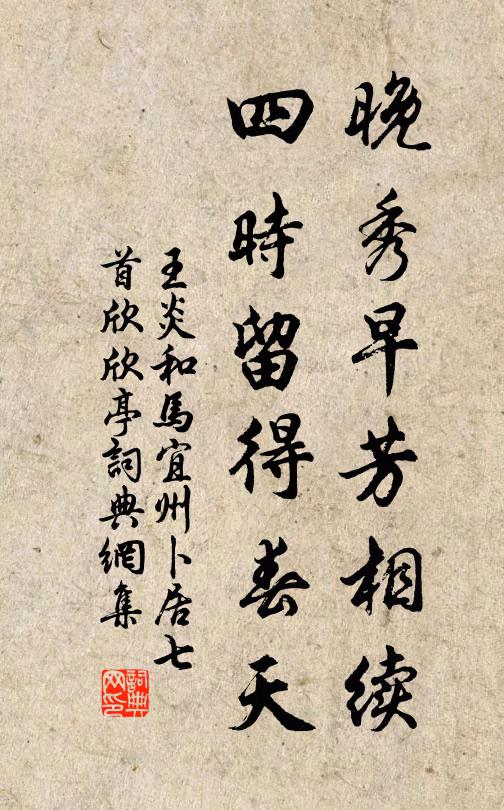 晚秀早芳相续
四時留得春天
王炎和馬宜州卜居七
首欣欣亭詞典網集
詞典网印